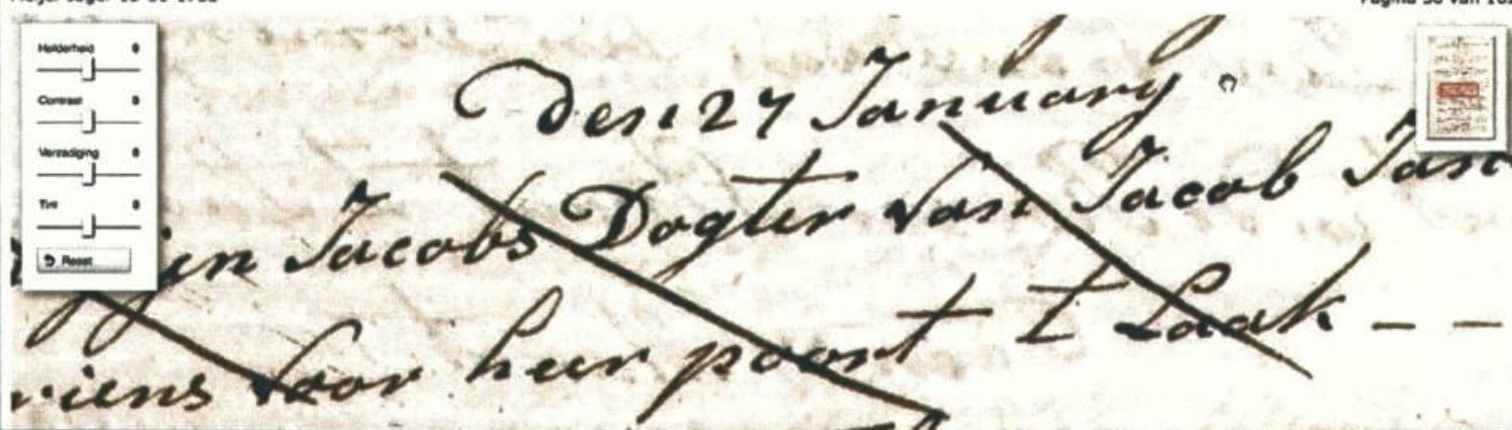 Helderheid 0
Contrast 0
Verzadiging 0
Tint 0
Reset
Den 27 January
Jacobs Dogter van Jacob Jan
voor heer poort t Laak - -